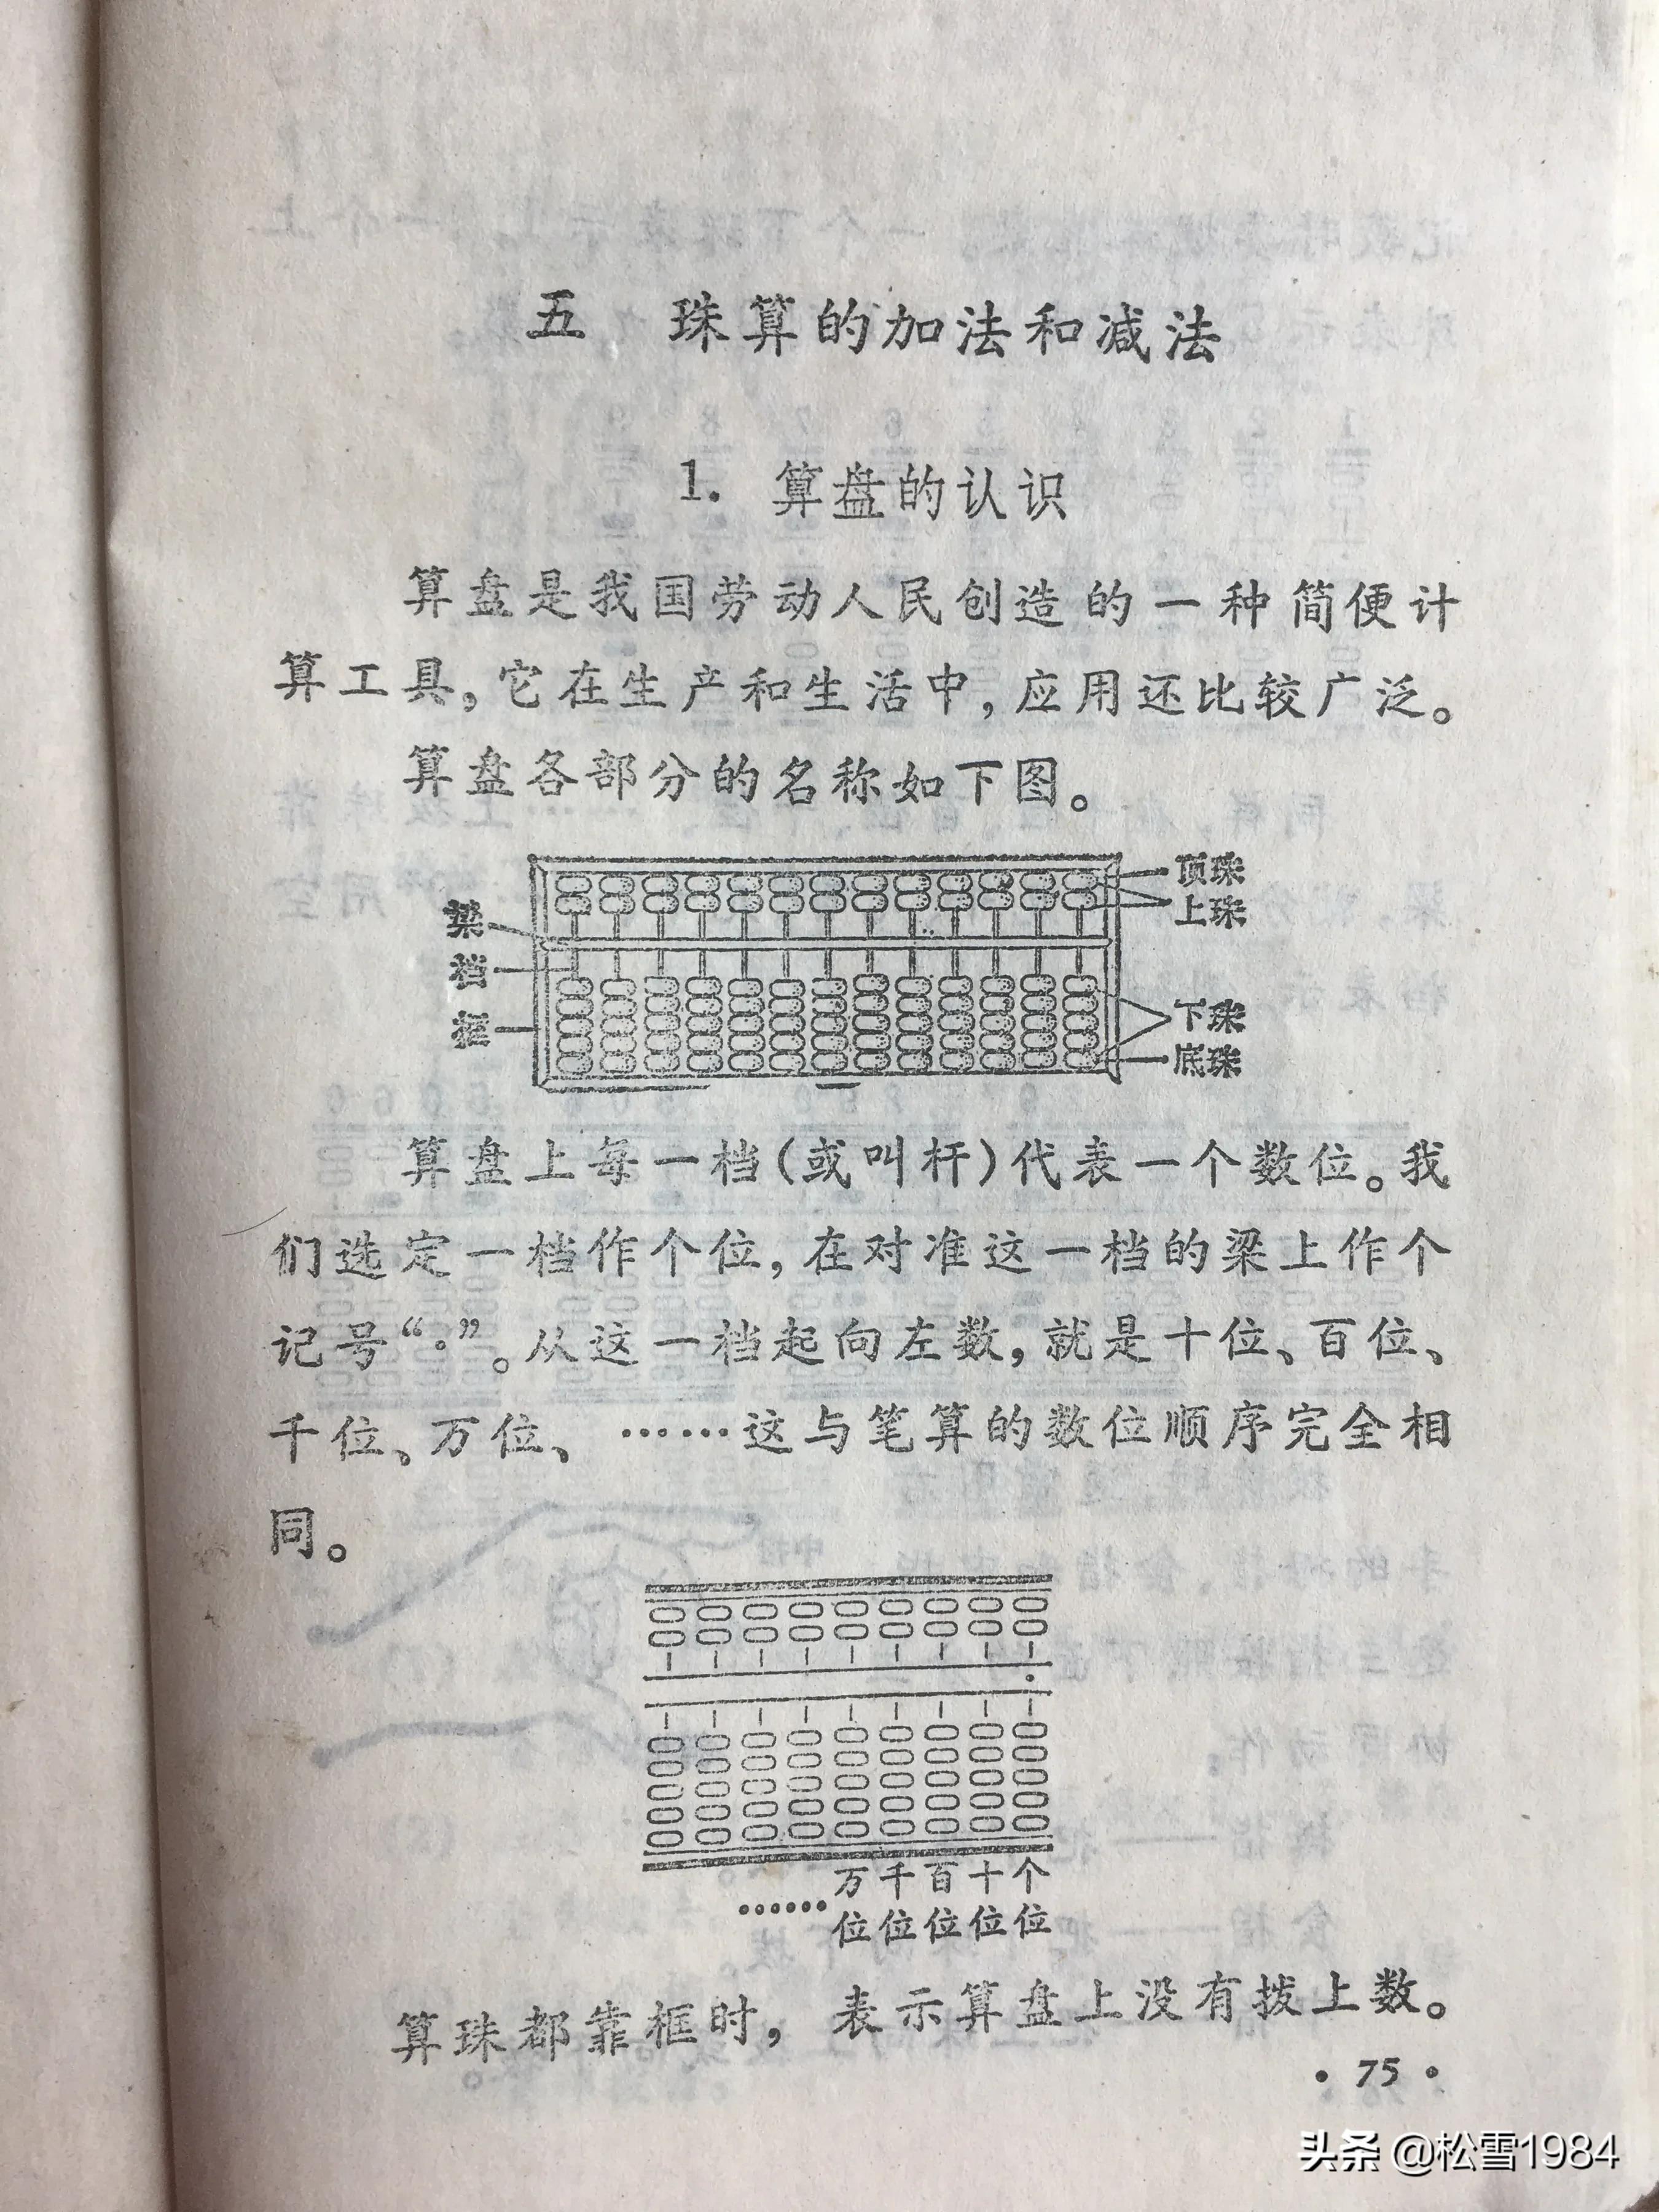 五 珠算的加法和减法
1. 算盘的认识
算盘是我国劳动人民创造的一种简便计
算工具,它在生产和生活中,应用还比较广泛。
算盘各部分的名称如下图。
顶珠
梁
上珠
档
框
下珠
底珠
算盘上每一档(或叫杆)代表一个数位。我
们选定一档作个位,在对准这一档的梁上作个
记号“·”。从这一档起向左数,就是十位、百位、
千位、万位、……这与笔算的数位顺序完全相
同。
万千百十个
……位位位位位
算珠都靠框时,表示算盘上没有拨上数。
· 75 ·
头条 @松雪1984